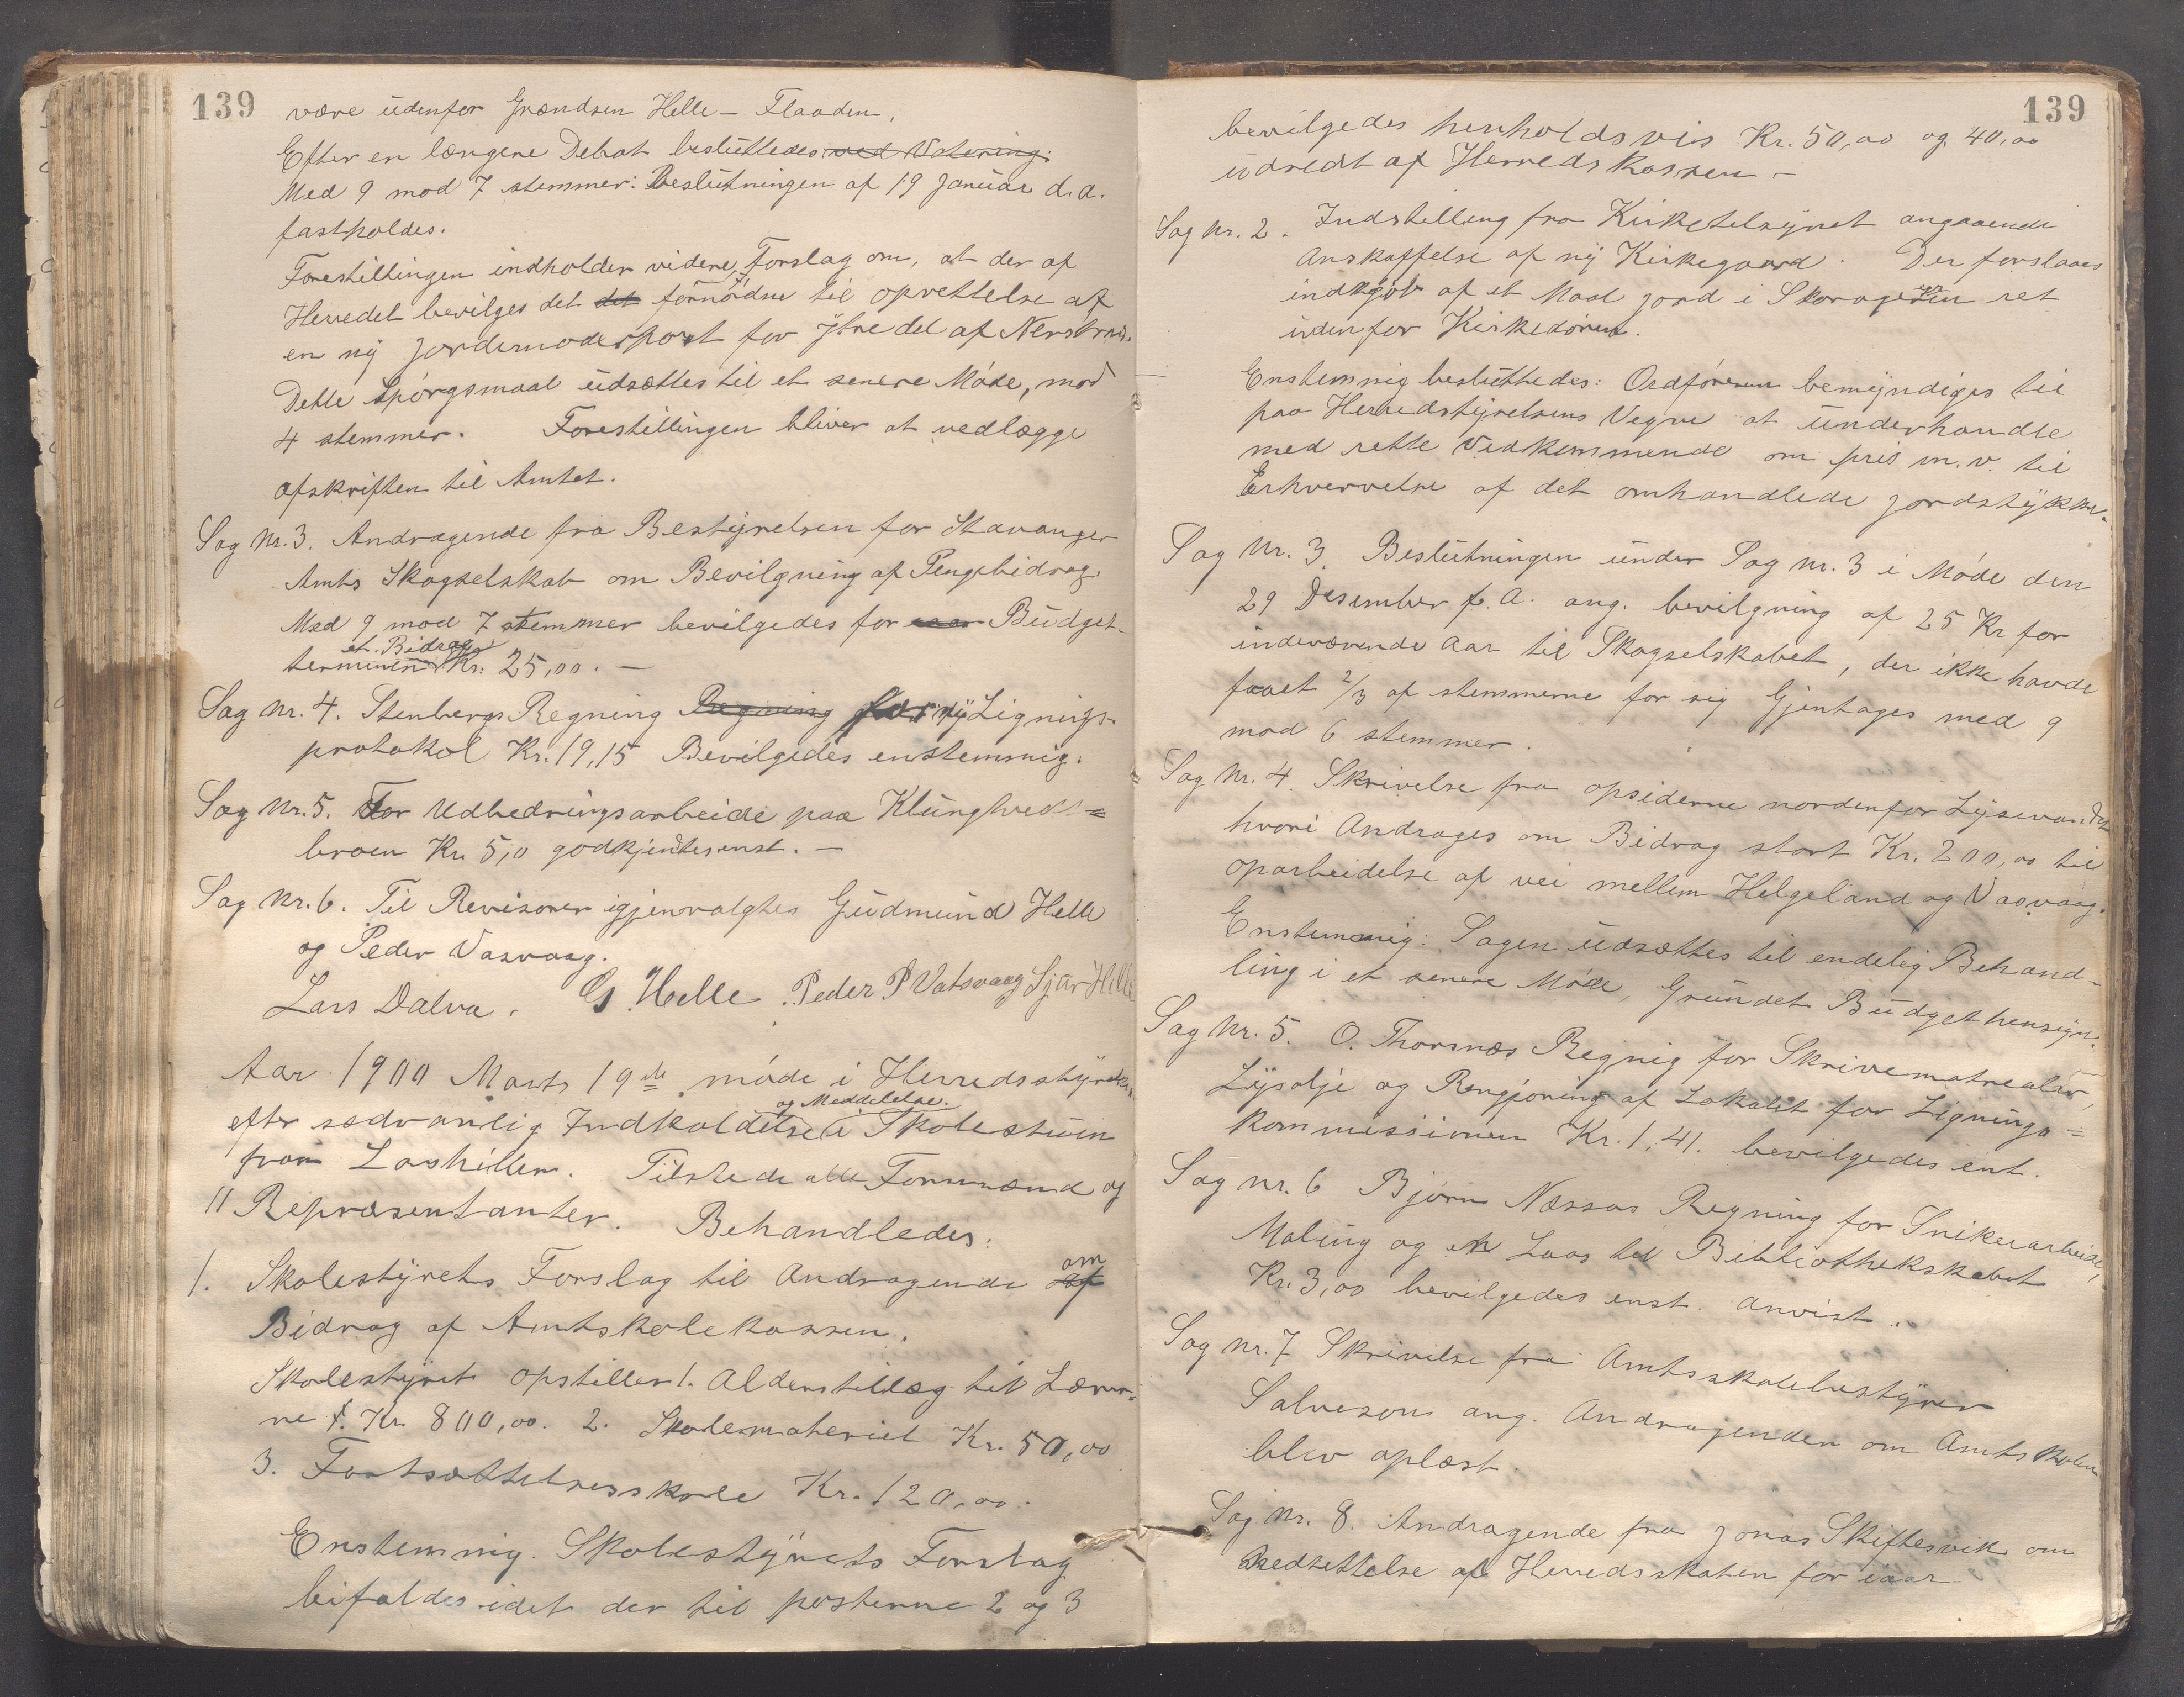 139
være udenfor Grændsen Helle – Flaaden.
Efter en længere Debat besluttedes ved Votering:
Med 9 mod 7 stemmer: Beslutningen af 19 Januar d.a.
fastholdes.
Forestillingen indholder videre, Forslag om, at der af
Herredet bevilges det det fornødne til oprettelse af
en ny Jordemoderpost for Ytre del af
Dette Spørgsmaal udsættes til et senere Møde, mod
4 stemmer. Forestillingen bliver at vedlægge
afskriften til Amtet.
Sag Nr. 3. Andragende fra Bestyrelsen for Stavanger
Amts Skogselskab om Bevilgning af Pengebidrag.
Med 9 mod 7 stemmer bevilgedes for Budget-
et Bidrag
terminen Kr: 25,00. –
Sag Nr. 4. Stenbergs Regning Regning for ny Lignings-
protokol Kr. 19,15 Bevilgedes enstemmig.
Sag Nr. 5. For Udbedringsarbeide paa
broen Kr. 5,0 godkjendtes enst. –
Sag Nr. 6. Til Revisorer igjenvalgtes Gudmund Helle
og Peder Vasvaag.
Lars Dalva. G Helle Peder P Vatsvaag Sjur Helle
Aar 1900 Marts 19de møde i Herredsstyret
og Meddelelse.
efter sædvanlig Indkaldelse i Skolestuen
paa Lashiller. Tilstede alle Formænd og
11 Repræsentanter. Behandledes:
1. Skolestyrets Forslag til Andragende af om
Bidrag af Amtskolekassen.
Skolestyret opstiller 1. Alderstillæg til Lærer-
ne Kr. 800,00. 2. Skolemateriel Kr. 50,00
3. Fortsættelsesskole Kr. 120,00.
Enstemmig. Skolestyrets Forslag
bifaldes idet der til posterne 2 og 3
139
bevilgedes henholdsvis Kr. 50,00 og 40,00
udredt af Herredskassen –
Sag Nr. 2. Indstilling fra Kirketilsynet angaaende
Anskaffelse af ny Kirkegaard. Der forslaaes
indkjøb af et Maal jord i ret
udenfor Kirkedøren.
Enstemmig besluttedes: Ordføreren bemyndiges til
paa Herredstyrelsens Vegne at underhandle
med rette Vedkommende om pris m.v. til
Erhvervelse af det omhandlede jordstykke.
Sag Nr. 3. Beslutningen under Sag nr. 3 i Møde den
29 Desember f.A. ang. bevilgning af 25 Kr for
indeværende Aar til Skogselskabet, der ikke havde
faaet 2/3 af stemmerne for sig Gjentages med 9
mod 6 stemmer.
Sag Nr. 4. Skrivelse fra opsiderne nordenfor Lysevandet
hvori Andrages om Bidrag stort Kr. 200,00 til
oparbeidelse af vei mellem Helgeland og Vasvaag.
Enstemmig: Sagen udsættes til endelig Behand-
ling i et senere Møde, Grundet Budgethensyn.
Sag Nr. 5. O. Thorsnæs Regnig for Skrivematrealer,
Lysolje og Rengjøring af Lokalet for Lignings=
kommissionen Kr. 1,41. bevilgedes ent.
Sag nr. 6 Bjørn Næssas Regning for Snikerarbeide,
Maling og en Laas til Bibliothekskabet
Kr. 3,00 bevilgedes enst. anvist.
Sag nr. 7 Skrivilse fra Amtsskolebestyrer
Salvesen ang. Andragenden om Amtsskolen
blev oplæst.
Sag Nr. 8. Andragende fra Jonas Skiftesvik om
Nedsettelse af Herredsskaten for iaar